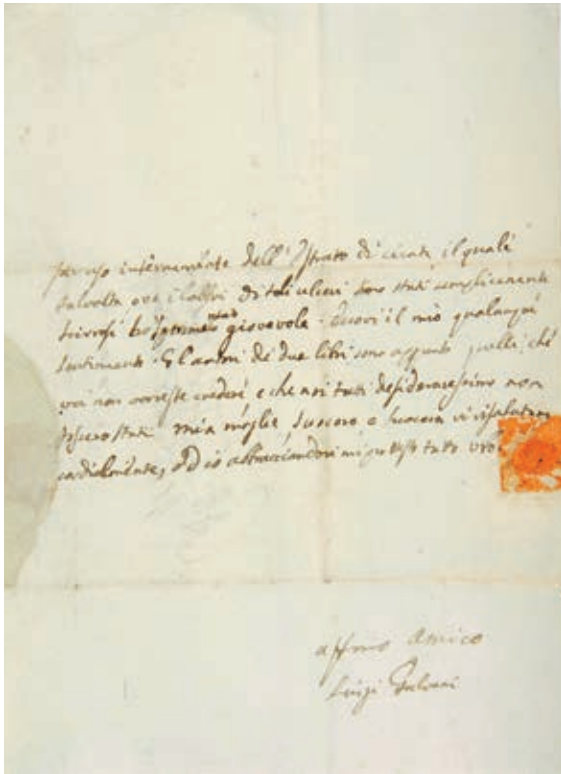 internamente dell'Estratto di cicuta il quale
talvolta ove i labbri di tali ulceri sono stati semplicemente
giovevole. Eccovi il mio qualunque
sentimento. Gl'autori de due libri sono appunto quelli, che
voi non vorreste credere e che noi tutti desideraressimo non
fossero stati. mia moglie, suocero e suocera vi risalutano
cordialmente, ed io abbracciandovi mi protesto tutto vro
affmo Amico
Luigi Galvani